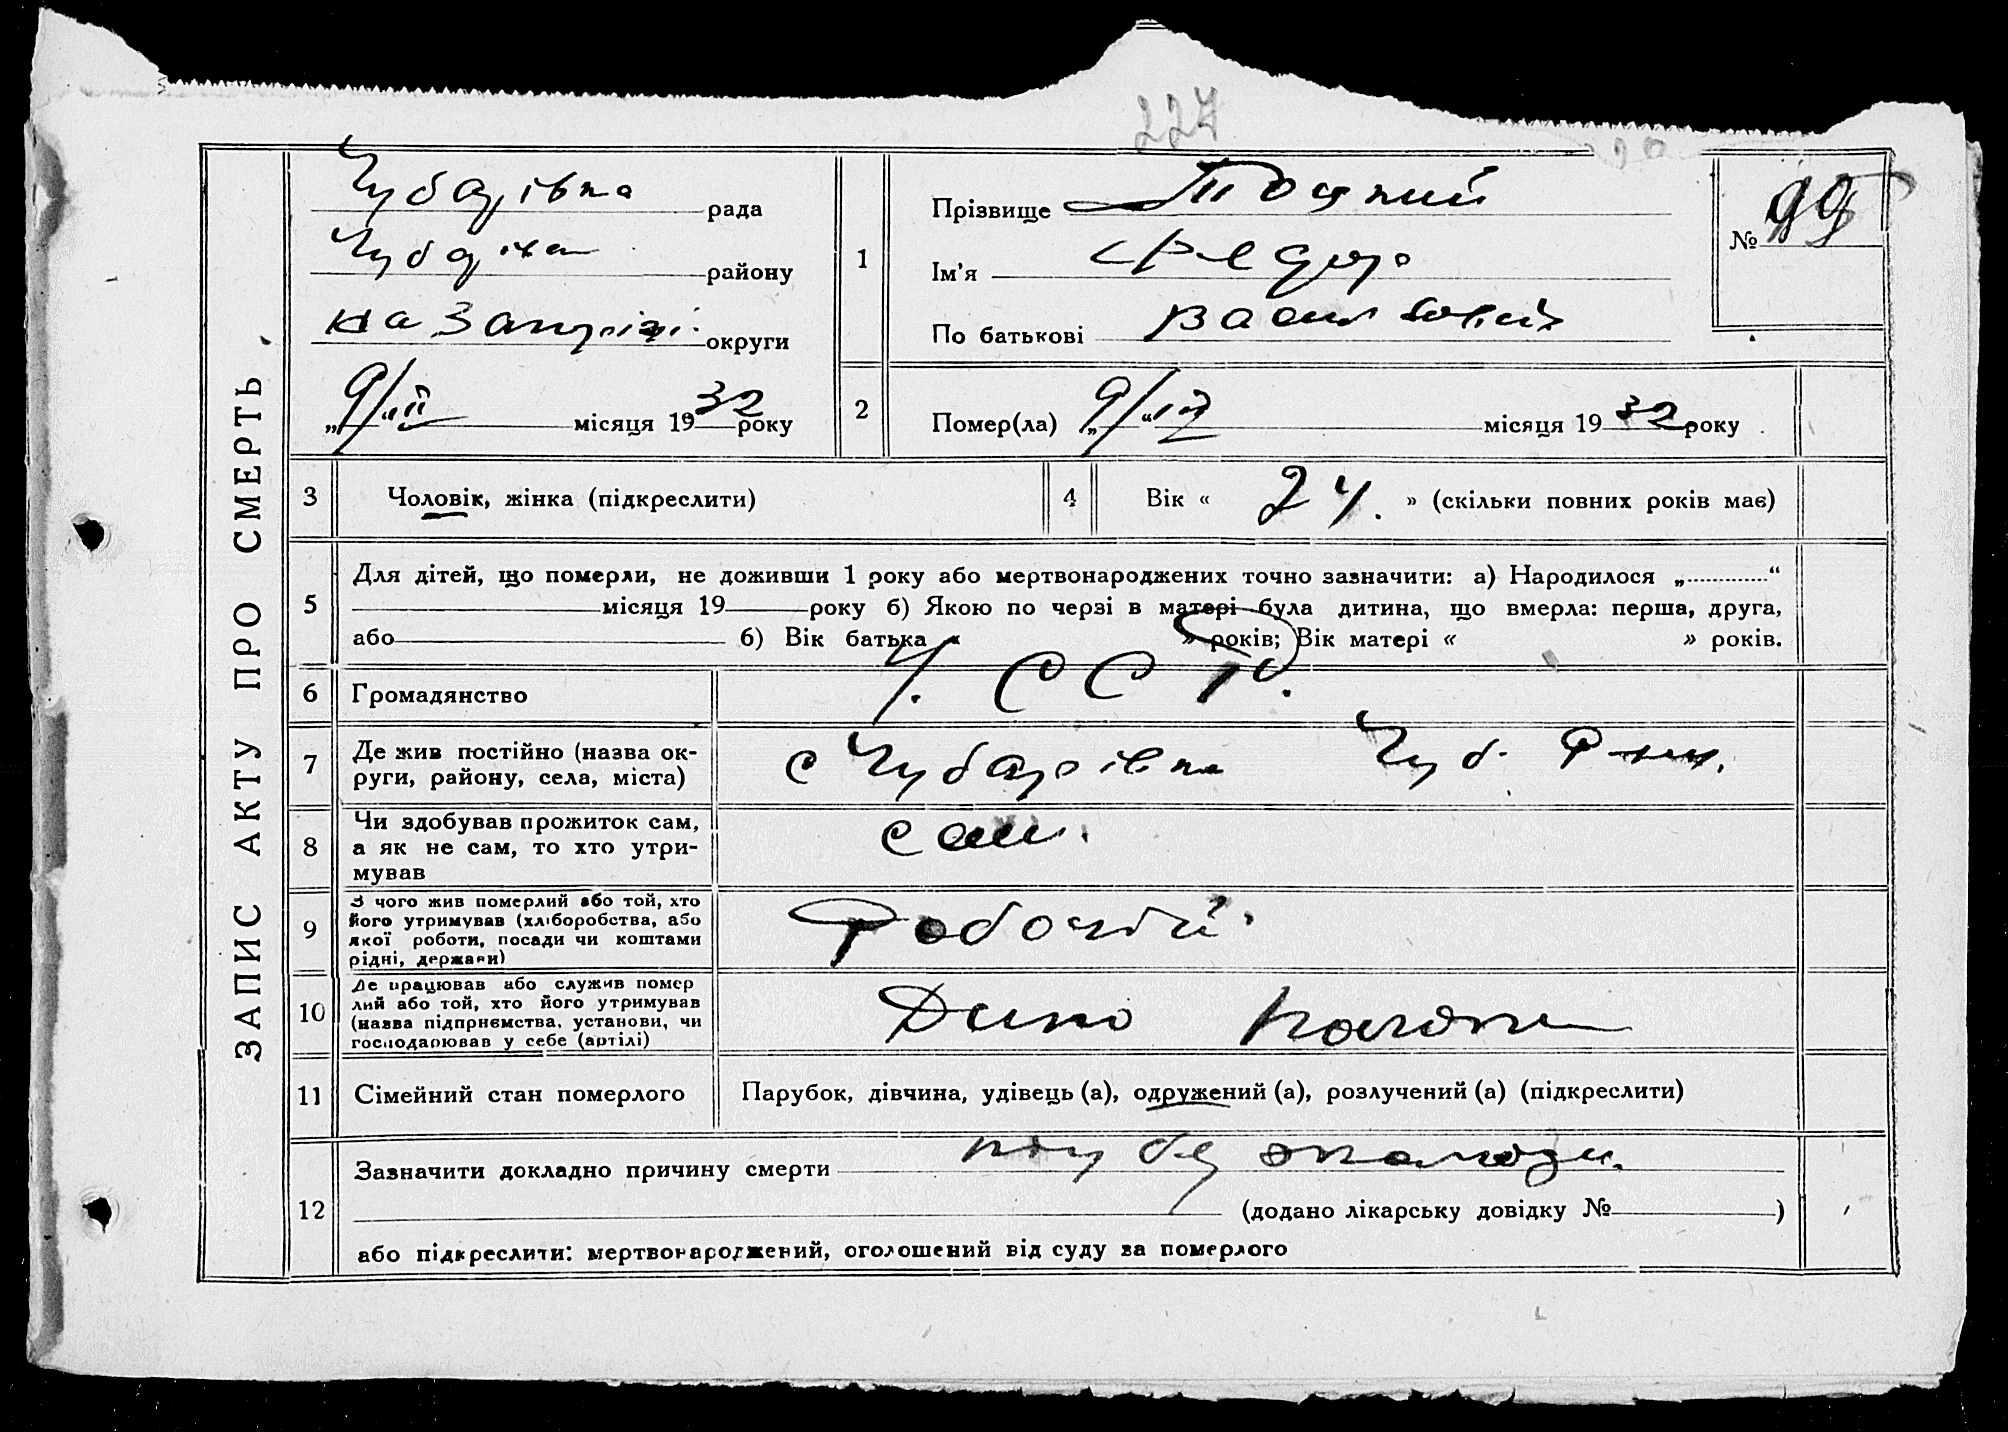 227
ЗАПИС АКТУ ПРО СМЕРТЬ
Чубарівка рада
району
на Запоріжі округи
9/ІІ місяця 1932 року
1
Прізвище
Ім'я Федор
По батькові Васильович
№ 99
2
Помер(ла) 9/ місяця 1932 року
3
Чоловік, жінка (підкреслити)
4
Вік « 24. » (скільки повних років має)
5
Для дітей, що померли, не доживши 1 року або мертвонароджених точно зазначити: а) Народилося „ “
місяця 19 року б) Якою по черзі в матері була дитина, що вмерла: перша, друга,
або б) Вік батька « » років; Вік матері « » років.
6
Громадянство
У. С С Р.
7
Де жив постійно (назва ок-
руги, району, села, міста)
с Чубарівка Чуб. Р-ну.
8
Чи здобував прожиток сам,
а як не сам, то хто утри-
мував
сам.
9
З чого жив померлий або той, хто
його утримував (хліборобства, або
якої роботи, посади чи коштами
рідні, держави)
Робочій
10
Де працював або служив помер
лий або той, хто його утримував
(назва підприємства, установи, чи
господарював у себе (артілі)
11
Сімейний стан померлого
Парубок, дівчина, удівець (а), одружений (а), розлучений (а) (підкреслити)
12
Зазначити докладно причину смерти
(додано лікарську довідку № )
або підкреслити: мертвонароджений, оголошений від суду за померлого